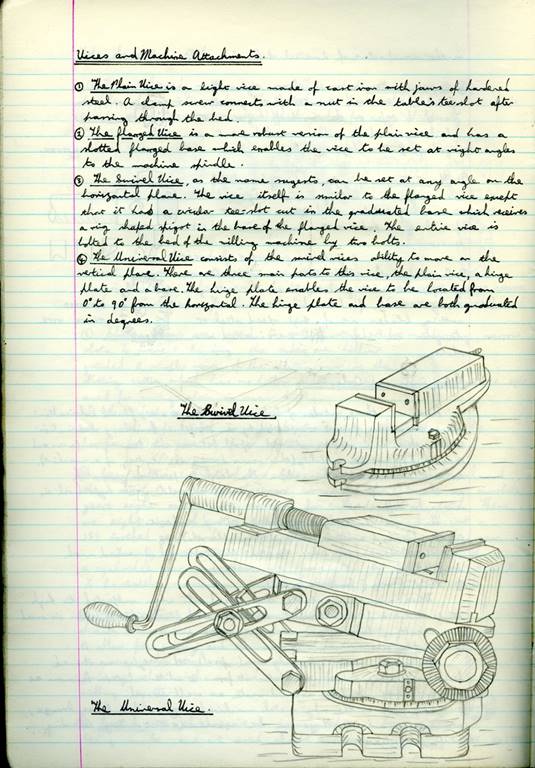 Vices and Machine Attachments.
① The Plain Vice is a light vice made of cast iron with jaws of hardened
steel. A clamp screw connects with a nut in the table's tee slot after
passing through the bed.
② The Flanged Vice is a more robust version of the plain vice and has a
slotted flanged base which enables the vice to be set at right angles
to the machine spindle.
③ The Swivel Vice, as the name sugests, can be set at any angle on the
horizontal plane. The vice itself is similar to the flanged vice except
that it has a circular tee slot cut in the graduated base which receives
a ring shaped spigot in the base of the flanged vice. The entire vice is
bolted to the bed of the milling machine by two bolts.
④ The Universal Vice consists of the swivel vices ability to move on the
vertical plane. There are three main parts to this vice, the plain vice, a hinge
plate and a base. The hinge plate enables the vice to be located from
0° to 90° from the horizontal. The hinge plate and base are both graduated
in degrees.
The Swivel Vice.
The Universal Vice.